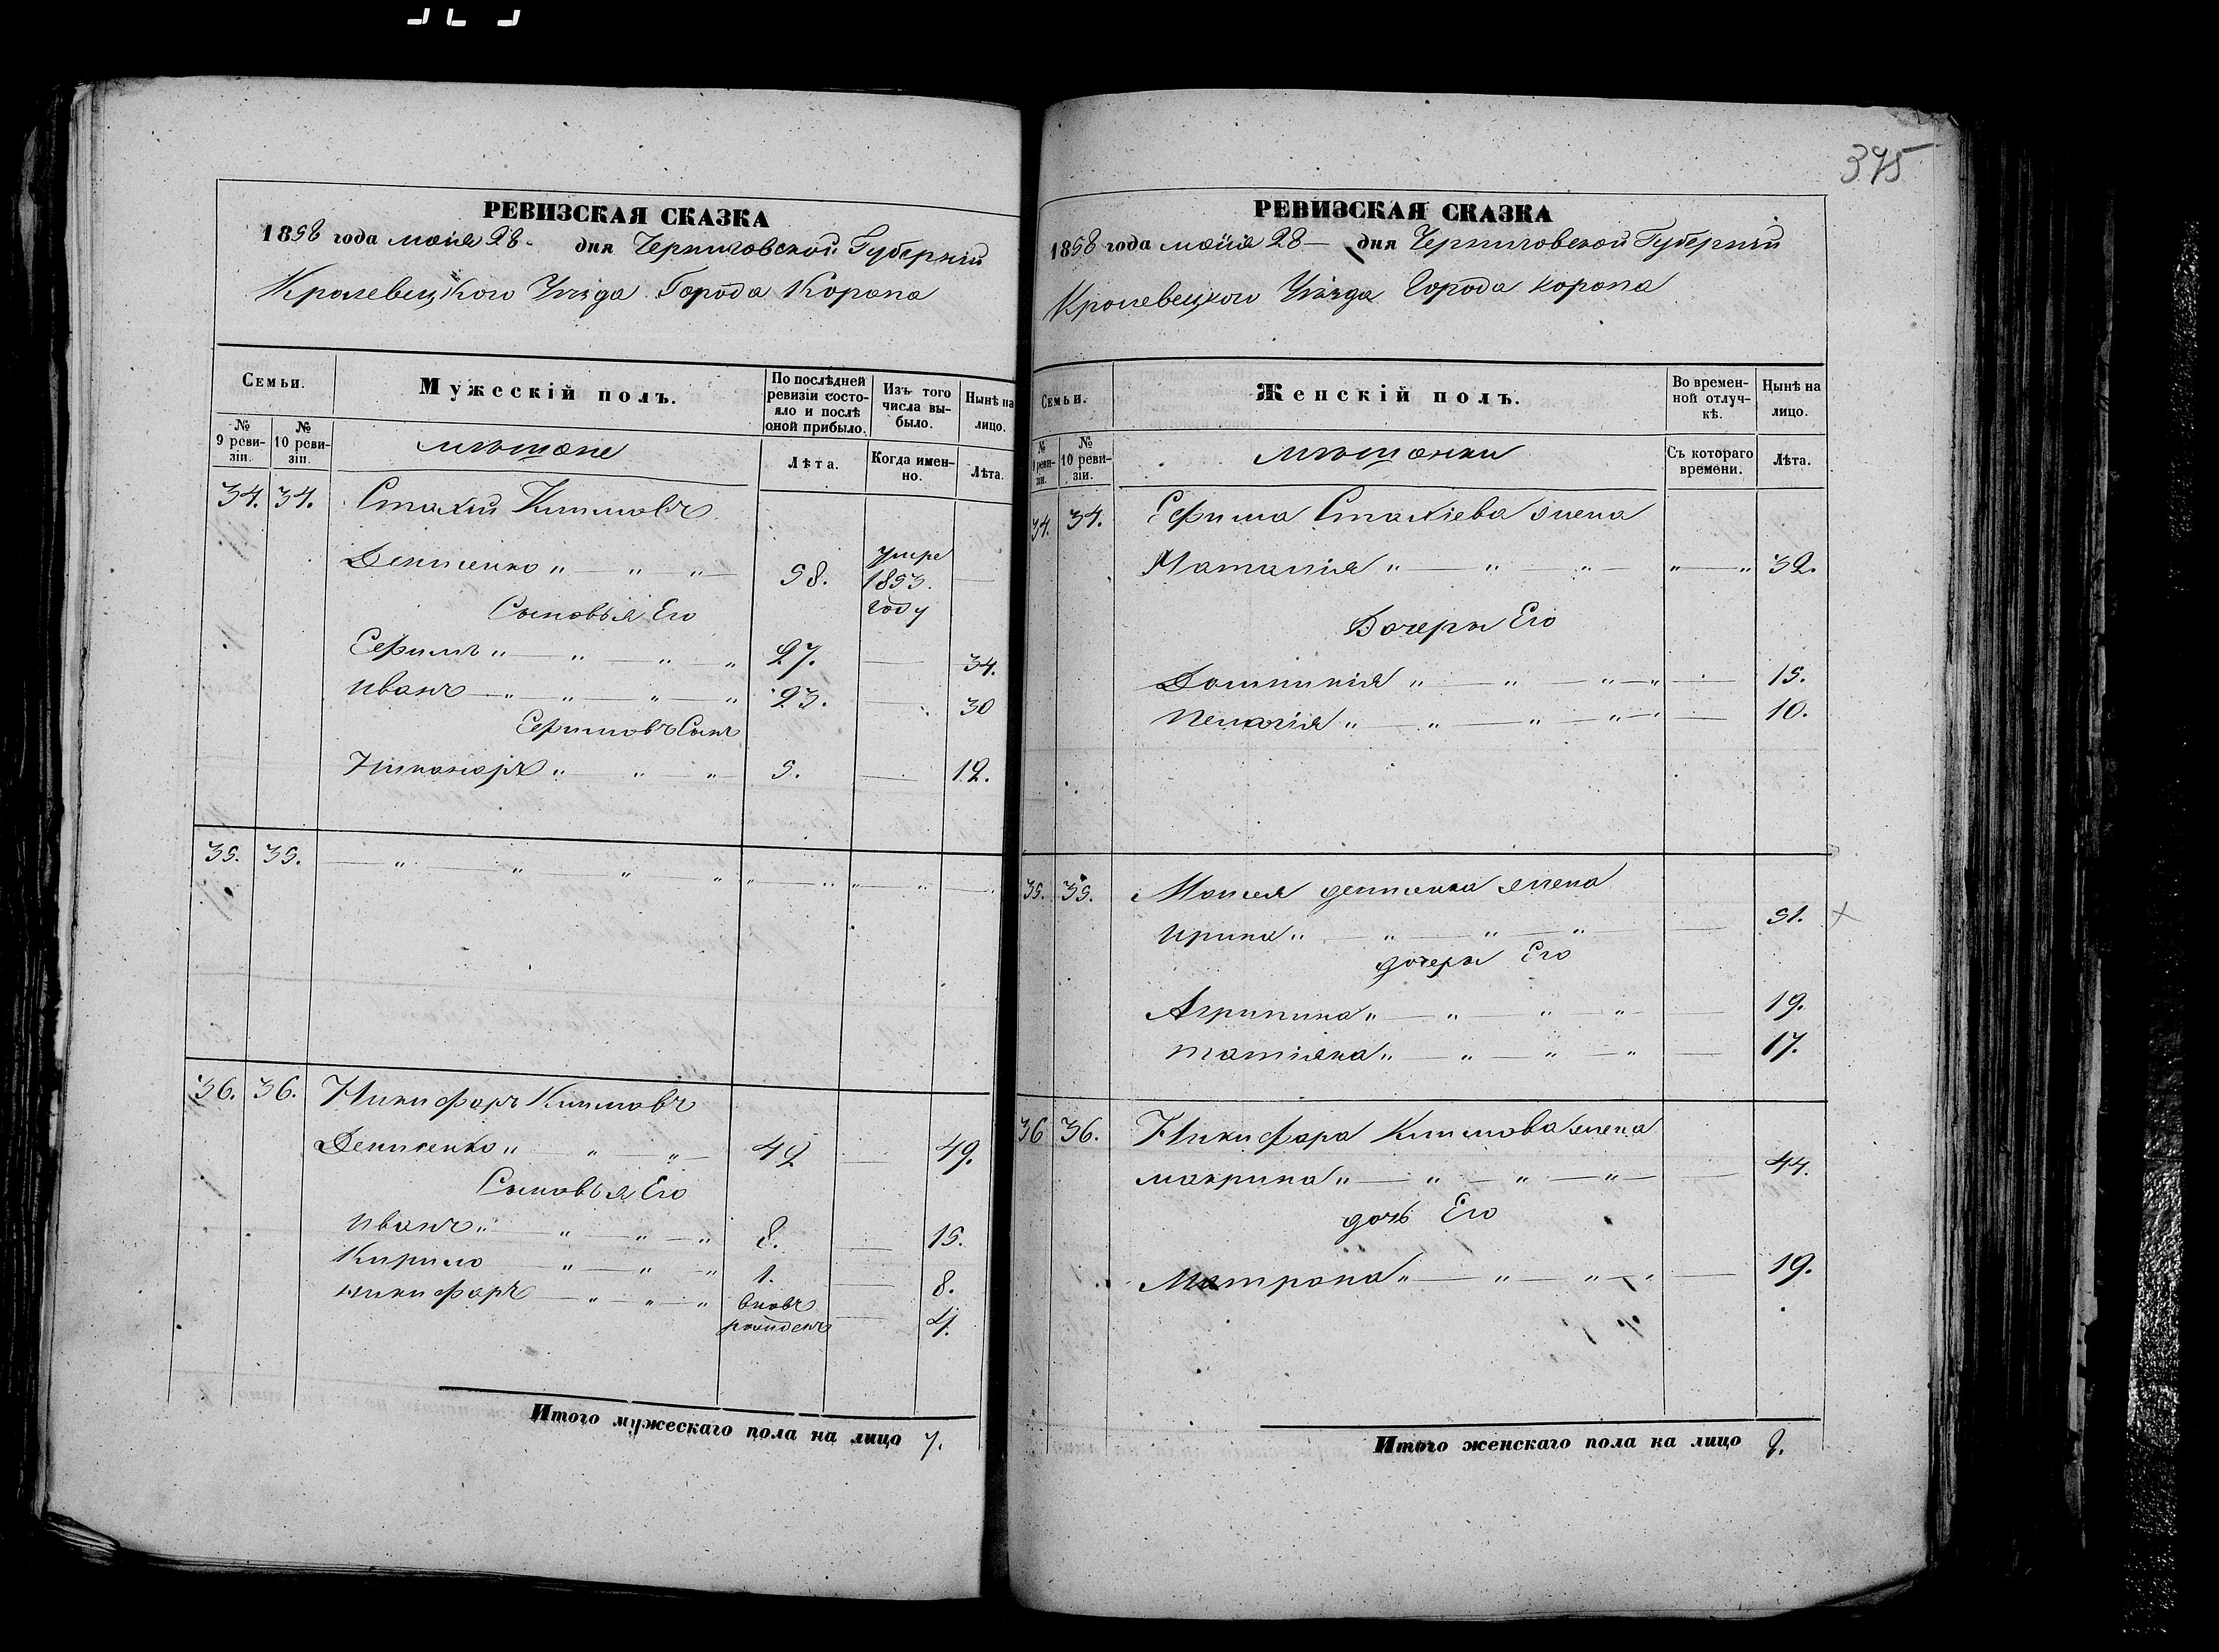 РЕВИЗСКАЯ СКАЗКА
1858 года маія 28. дня Черниговской Губерніи
Кролевецкого Уѣзда Города Коропа
Семьи.
Мужескій полъ.
По послѣдней ревизіи состояло и послѣ оной прибыло.
Изъ того числа выбыло.
Нынѣ на лицо.
№ 9 ревизіи.
№ 10 ревизіи.
мѣщане
Лѣта.
Когда именно.
Лѣта.
34. 34. Стахий Климовъ
Денисенко „ — „ „ — 58. умре 1853. году —
Сыновья Его
Ефимъ „ — „ — „ — „ 27. — 34.
Иванъ — „ — „ „ — „ 23. — 30
Ефимовъ Сынъ
Никаноръ „ „ „ — 5. — 12.
35. 35. — „ „ „ „ „ — „ „ — „ —
36. 36. Никифоръ Климовъ
Денисенко „ — „ — „ — 42 — 49.
Сыновья Его
Иванъ „ — „ — „ — „ 8. — 15.
Кирило „ — „ — „ 1. — 8.
Никифоръ — „ — „ — „ вновь рожденъ — 4.
Итого мужескаго пола на лицо 7.
375
РЕВИЗСКАЯ СКАЗКА
1858 года маія 28 — дня Черниговской Губерніи
Кролевецкого Уѣзда Города Коропа
Семьи.
Женскій полъ.
Во временной отлучкѣ.
Нынѣ на лицо.
№ 9 ревизіи.
№ 10 ревизіи.
мѣщанки
Съ котораго времени.
Лѣта.
34. 34. Ефима Стахіева жена
Наталія „ — „ — „ — „ — „ 32.
Дочеры Его
Домникія „ — „ — „ — „ — 15.
Пелагія „ — „ — „ — „ — 10.
35. 35. Моисея денисенка жена
Ирина „ — „ — „ — „ — 51.
дочеры Его
Агрипина „ — „ — „ — „ — 19.
татіяна „ — „ — „ — „ — 17.
36 36. Никифора Климова жена
макрина „ — „ — „ — „ — 44.
дочь Его
Матрона „ — „ — „ — „ — 19.
Итого женскаго пола на лицо 8.